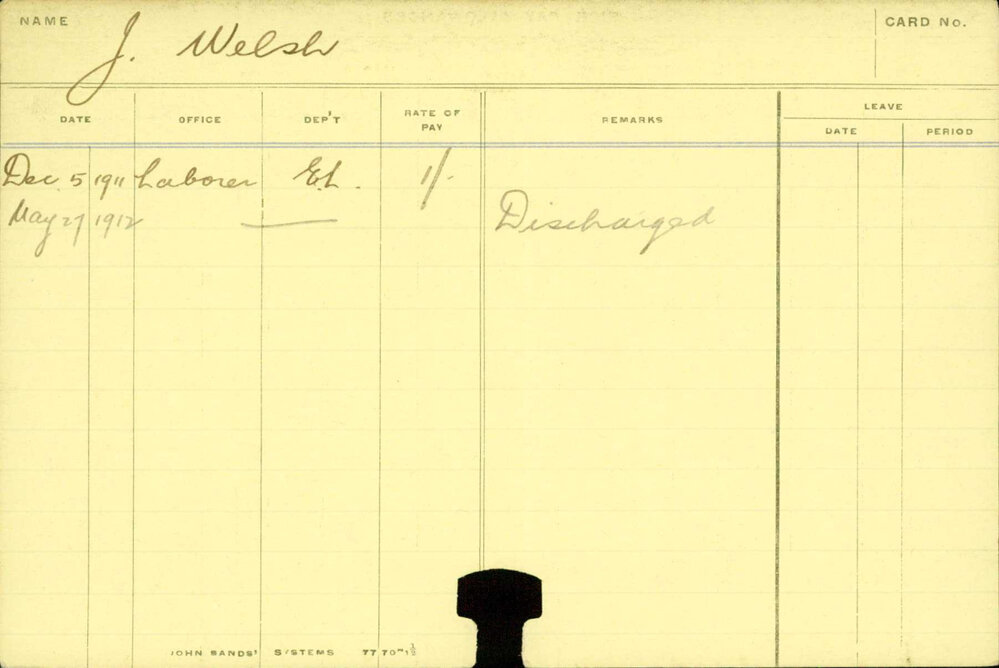 NAME J. Welsh CARD No.
DATE OFFICE DEP'T RATE OF PAY REMARKS LEAVE
DATE PERIOD
Dec. 5 1911 Laborer E.L. 1/-
May 27 1912 — Discharged
JOHN SANDS' SYSTEMS 7770